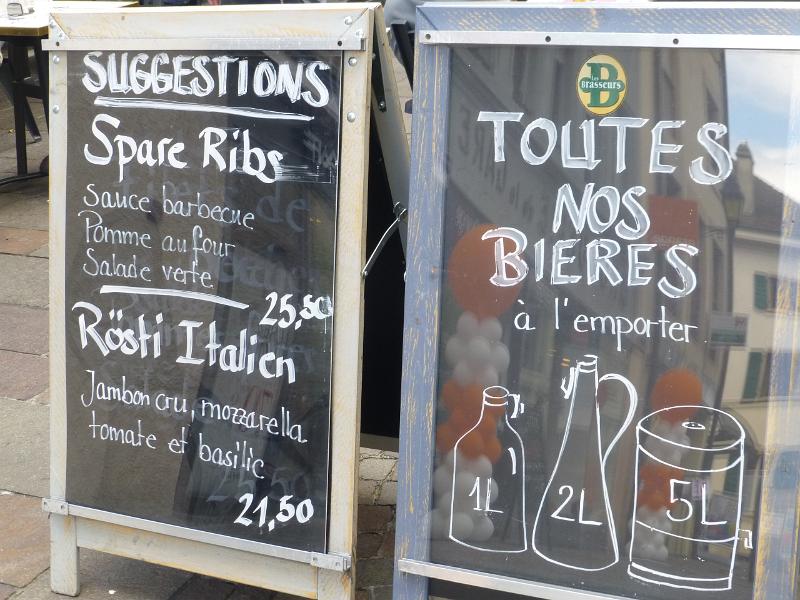 SUGGESTIONS
Spare Ribs
Sauce barbecue
Pomme au four
Salade verte
25,50
Rösti Italien
Jambon cru, mozzarella
tomate et basilic
21,50
B
Les
Brasseurs
TOUTES
NOS
BIERES
à l'emporter
1L
2L
5L